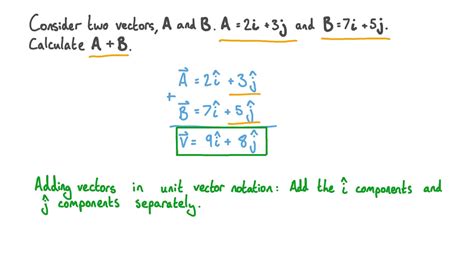 Consider two vectors, A and B. A = 2i + 3j and B = 7i + 5j.
Calculate A + B.
A⃗ = 2î + 3ĵ
+
B⃗ = 7î + 5ĵ
V⃗ = 9î + 8ĵ
Adding vectors in unit vector notation: Add the î components and
ĵ components separately.